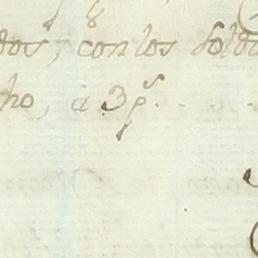 dos, con los Sold
ho, á 3 p.s